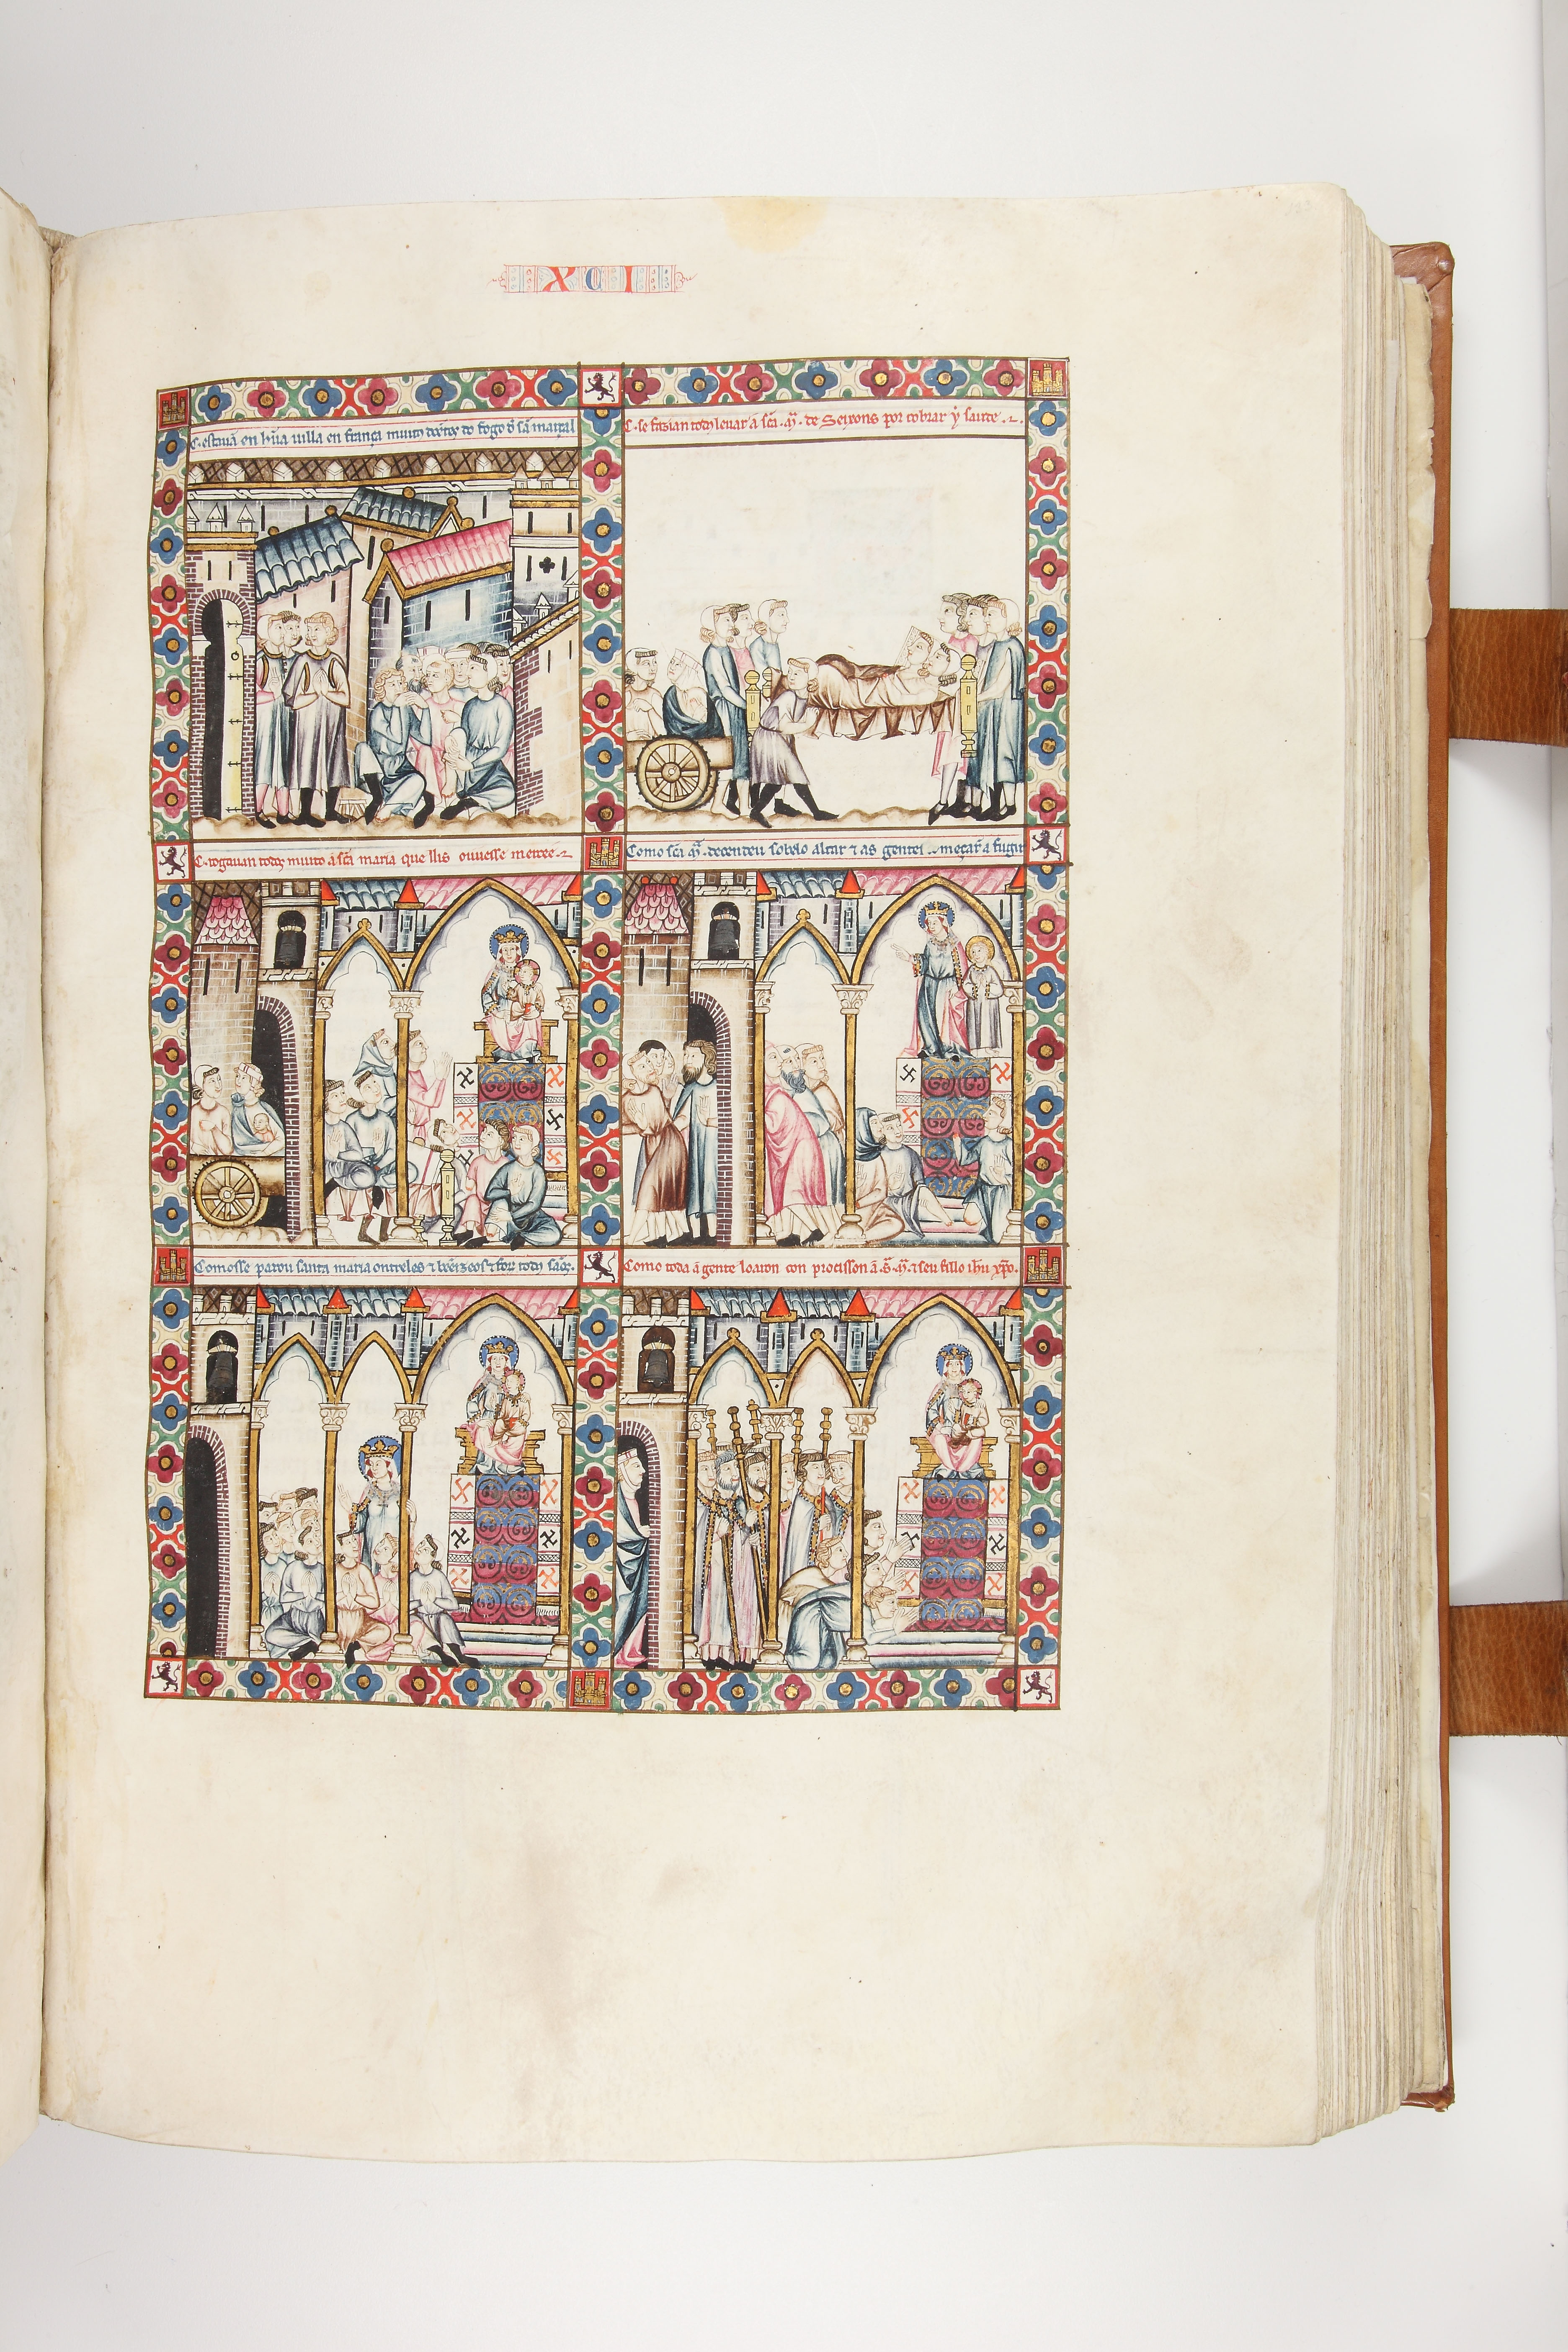 XCI
C. estavã en hũa villa en frança muito doẽtes do fogo d sã marçal
C. se fazian todos levar a sc̃a .mª. de Seixons por cobrar y̓ saude.
C. rogavan todos muito a sc̃a maria que llis ouvesse mercee
Como sc̃a mª. decendeu sobelo altar ⁊ as gentes meçarõ a fugir
Comosse parou santa maria ontreles ⁊ bẽeizeos ⁊ forõ todos sãos.
Como toda a gente loaron con procisson a .s. mª. ⁊ seu fillo ihũ xp̃o.